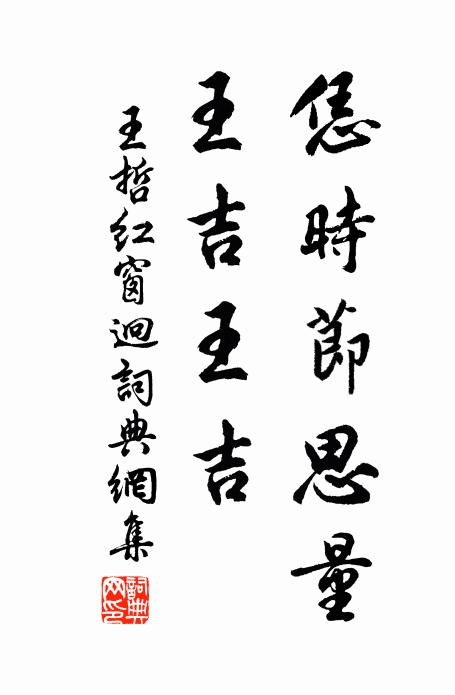 恁時節思量
王吉王吉
王哲紅窗迥詞典網集
詞典网印